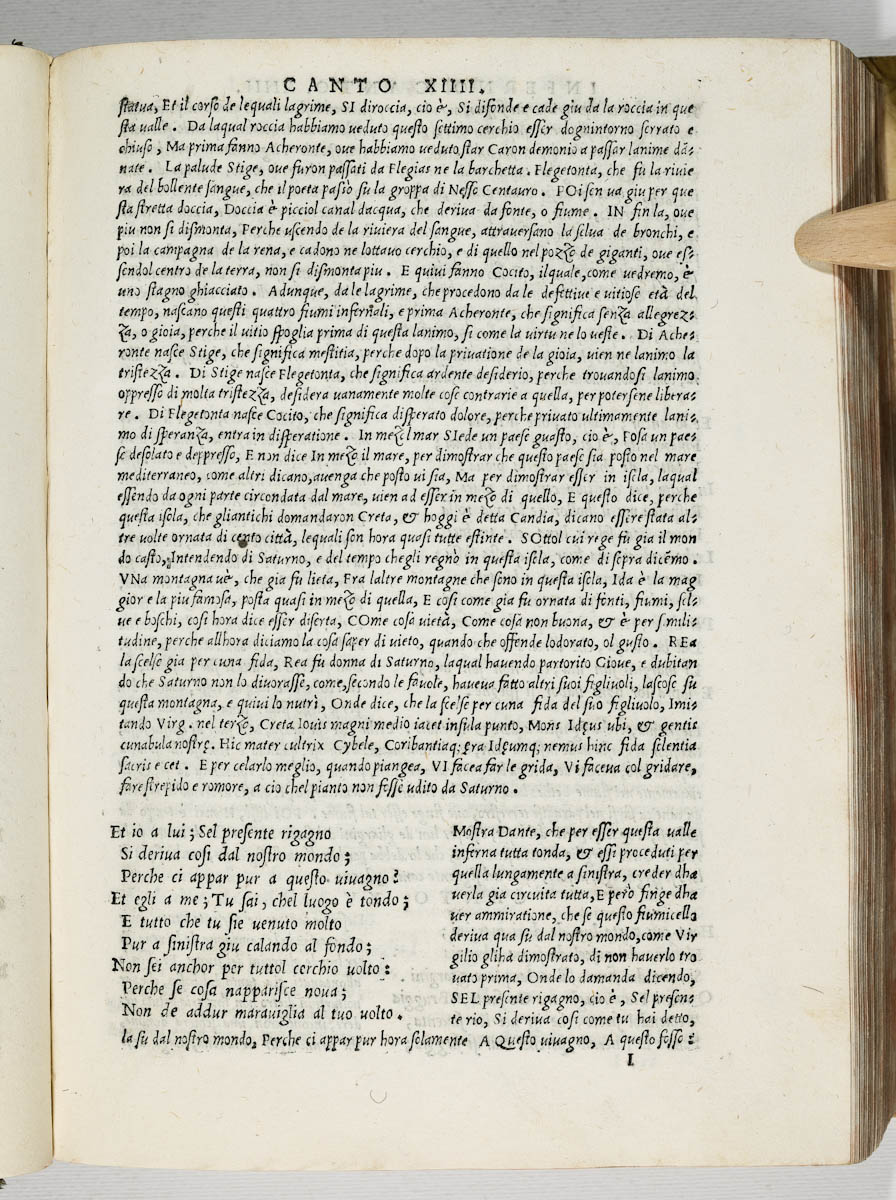 CANTO XIIII.
statua, Et il corso de lequali lagrime, SI diroccia, cio è, Si disonde e cade giu da la roccia in que
sta ualle. Da laqual roccia habbiamo ueduto questo settimo cerchio esser dognintorno serrato e
chiuso, Ma prima fanno Acheronte, oue habbiamo ueduto star Caron demonio a passar lanime dā-
nate. La palude Stige, oue furon passati da Flegias ne la barchetta. Flegetonta, che fu la riuie
ra del bollente sangue, che il poeta passò su la groppa di Nesso Centauro. POi sen ua giu per que
sta stretta doccia, Doccia è picciol canal dacqua, che deriua da fonte, o fiume. IN fin la, oue
piu non si dismonta, Perche uscendo de la riuiera del sangue, attrauersano la selua de bronchi, e
poi la campagna de la rena, e cadono ne lottauo cerchio, e di quello nel pozzo de giganti, oue es-
sendol centro de la terra, non si dismonta piu. E quiui fanno Cocito, ilquale, come uedremo, è
uno stagno ghiacciato. Adunque, da le lagrime, che procedono da le defettiue e uitiose età del
tempo, nascano questi quattro fiumi infernali, e prima Acheronte, che significa senza allegrez-
za, o gioia, perche il uitio spoglia prima di questa lanimo, si come la uirtu ne lo ueste. Di Ache-
ronte nasce Stige, che significa mestitia, perche dopo la priuatione de la gioia, uien ne lanimo la
tristezza. Di Stige nasce Flegetonta, che significa ardente desiderio, perche trouandosi lanimo
oppresso di molta tristezza, desidera uanamente molte cose contrarie a quella, per potersene libera-
re. Di Flegetonta nasce Cocito, che significa disperato dolore, perche priuato ultimamente lani-
mo di speranza, entra in disperatione. In mezzl mar SIede un paese guasto, cio è, Posa un pae-
se desolato e deppresso, E non dice In mezo il mare, per dimostrar che questo paese sia posto nel mare
mediterraneo, come altri dicano, auenga che posto ui sia, Ma per dimostrar esser in isola, laqual
essendo da ogni parte circondata dal mare, uien ad esser in mezo di quello, E questo dice, perche
questa isola, che gliantichi domandaron Creta, & hoggi è detta Candia, dicano essere stata al-
tre uolte ornata di cento città, lequali son hora quasi tutte estinte. SOttol cui rege fu gia il mon
do casto, Intendendo di Saturno, e del tempo chegli regnò in questa isola, come di sopra dicēmo.
VNa montagna uè, che gia fu lieta, Fra laltre montagne che sono in questa isola, Ida è la mag
gior e la piu famosa, posta quasi in mezo di quella, E cosi come gia fu ornata di fonti, fiumi, sel-
ue e boschi, cosi hora dice esser diserta, COme cosa uietà, Come cosa non buona, & è per simili-
tudine, perche allhora diciamo la cosa saper di uieto, quando che offende lodorato, ol gusto. REa
la scelse gia per cuna fida, Rea fu donna di Saturno, laqual hauendo partorito Gioue, e dubitan
do che Saturno non lo diuorasse, come, secondo le fauole, haueua fatto altri suoi figliuoli, lascosc su
questa montagna, e quiui lo nutrì, Onde dice, che la scelse per cuna fida del suo figliuolo, Imi-
tando Virg. nel terzo, Creta Iouis magni medio iacet insula punto, Mons Idęus ubi, & gentis
cunabula nostrę. Hic mater cultrix Cybele, Coribantiaq; ęra Idęumq; nemus hinc fida silentia
sacris e cet. E per celarlo meglio, quando piangea, VI facea far le grida, Vi faceua col gridare,
fare strepido e romore, a cio chel pianto non fosse udito da Saturno.
Et io a lui; Sel presente rigagno
Si deriua cosi dal nostro mondo;
Perche ci appar pur a questo uiuagno?
Et egli a me; Tu sai, chel luogo è tondo;
E tutto che tu sie uenuto molto
Pur a sinistra giu calando al fondo;
Non sei anchor per tuttol cerchio uolto:
Perche se cosa napparisce noua;
Non de addur marauiglia al tuo uolto.
Mostra Dante, che per esser questa ualle
inferna tutta tonda, & essi proceduti per
quella lungamente a sinistra, creder dha
uerla gia circuita tutta, E però finge dha
uer ammiratione, che se questo fiumicello
deriua qua su dal nostro mondo, come Vir
gilio gliha dimostrato, di non hauerlo tro
uato prima, Onde lo damanda dicendo,
SEL presente rigagno, cio è, Sel presen-
te rio, Si deriua cosi come tu hai detto,
la su dal nostro mondo, Perche ci appar pur hora solamente A Questo uiuagno, A questo fosso?
I